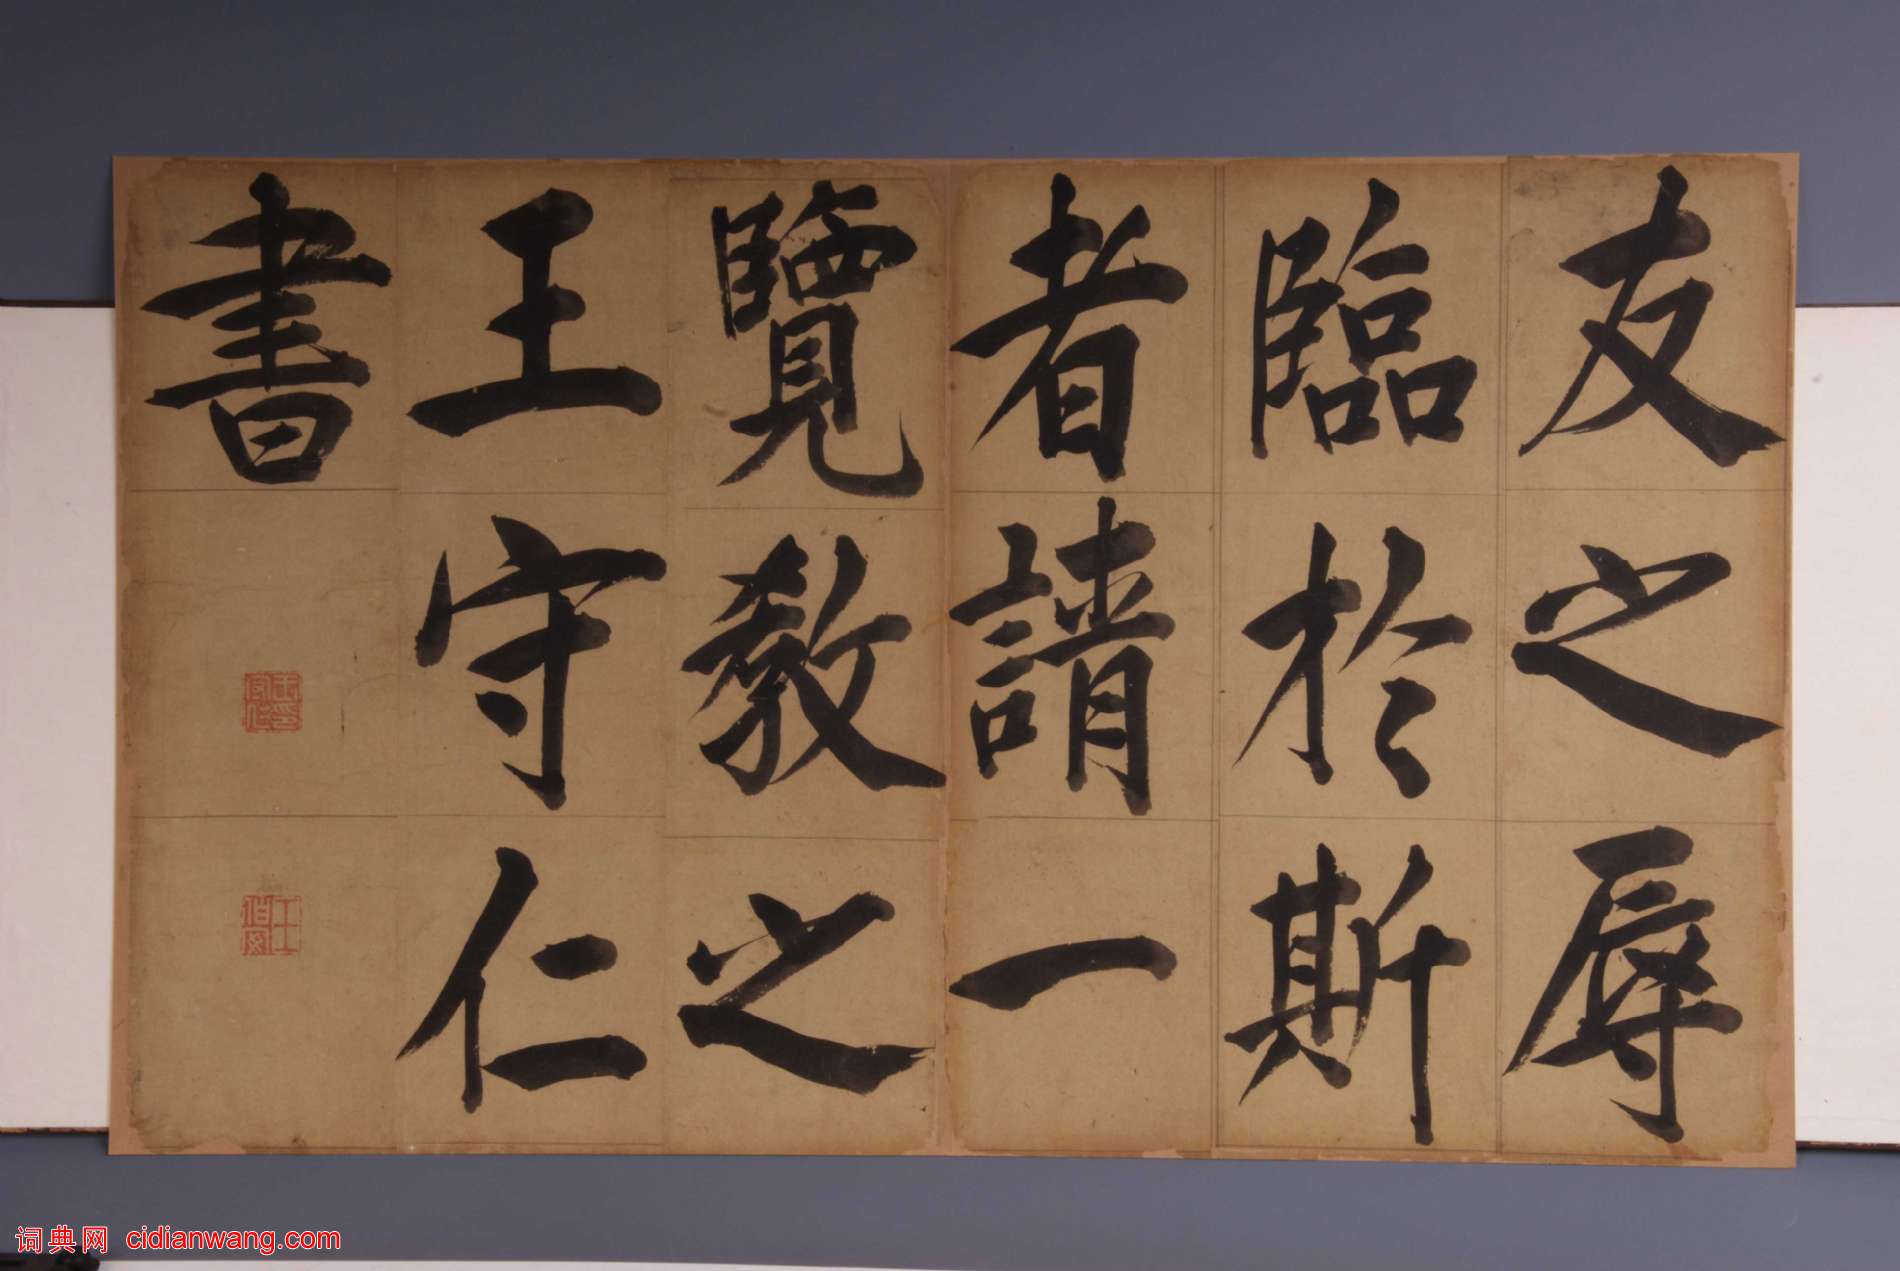 友之辱
臨於斯
者請一
覽教之
王守仁
書
王守仁印
詞典网 cidianwang.com